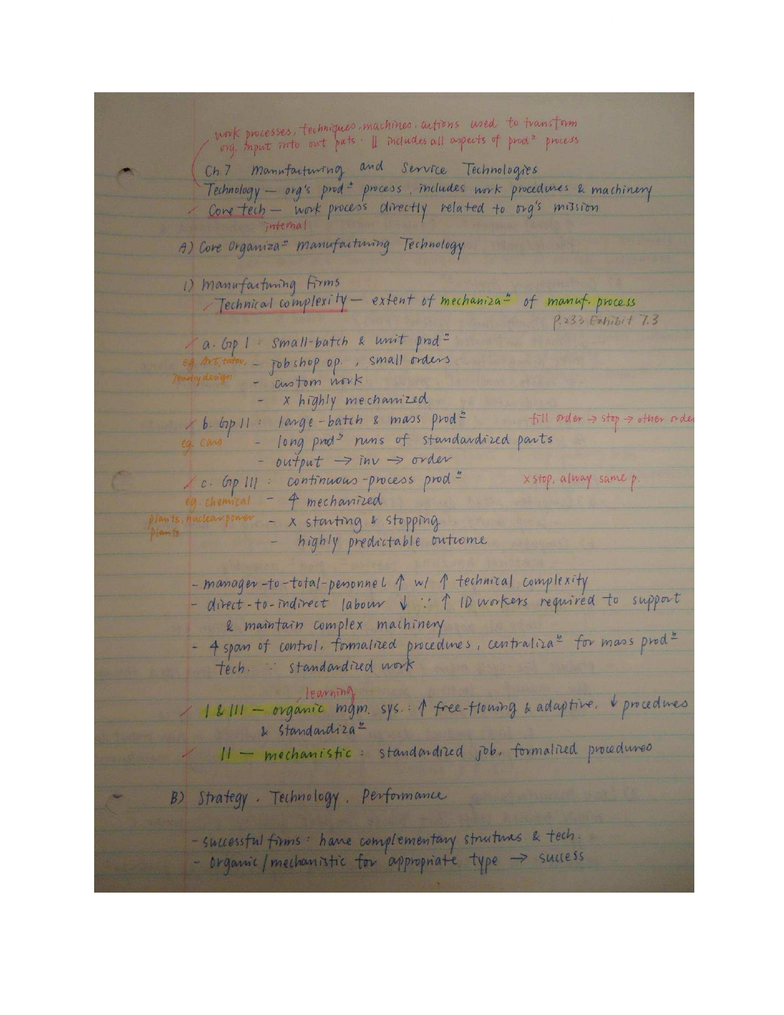 work processes, techniques, machines, actions used to transform
org input into out puts. It includes all aspects of prodⁿ process
Ch.7 Manufacturing and Service Technologies
Technology — org's prodⁿ process, includes work procedures & machinery
✓ Core tech — work process directly related to org's mission
internal
A) Core Organizaⁿ manufacturing Technology
1) Manufacturing Firms
✓ Technical complexity — extent of mechanizaⁿ of manuf. process
P.233 Exhibit 7.3
✓ a. Gp I : small-batch & unit prodⁿ
eg. Art,
- jobshop op., small orders
design
- custom work
- x highly mechanized
✓ b. Gp II : large-batch & mass prodⁿ fill order → stop → other order
eg. Cars - long prodⁿ runs of standardized parts
- output → inv → order
✓ c. Gp III : continuous-process prodⁿ x stop, alway same p.
eg. chemical - ↑ mechanized
plants, nuclear power - x starting & stopping
plants
- highly predictable outcome
- manager-to-total-personnel ↑ w/ ↑ technical complexity
- direct-to-indirect labour ↓ ∵ ↑ ID workers required to support
& maintain complex machinery
- ↑ span of control, formalized procedures, centralizaⁿ for mass prodⁿ
tech. ∵ standardized work
learning
✓ I & III — organic mgm. sys. : ↑ free-flowing & adaptive, ↓ procedures
& standardizaⁿ
✓ II — mechanistic : standardized job, formalized procedures
B) Strategy, Technology, Performance
- successful firms : have complementary strutures & tech.
- organic/mechanistic for appropriate type → success